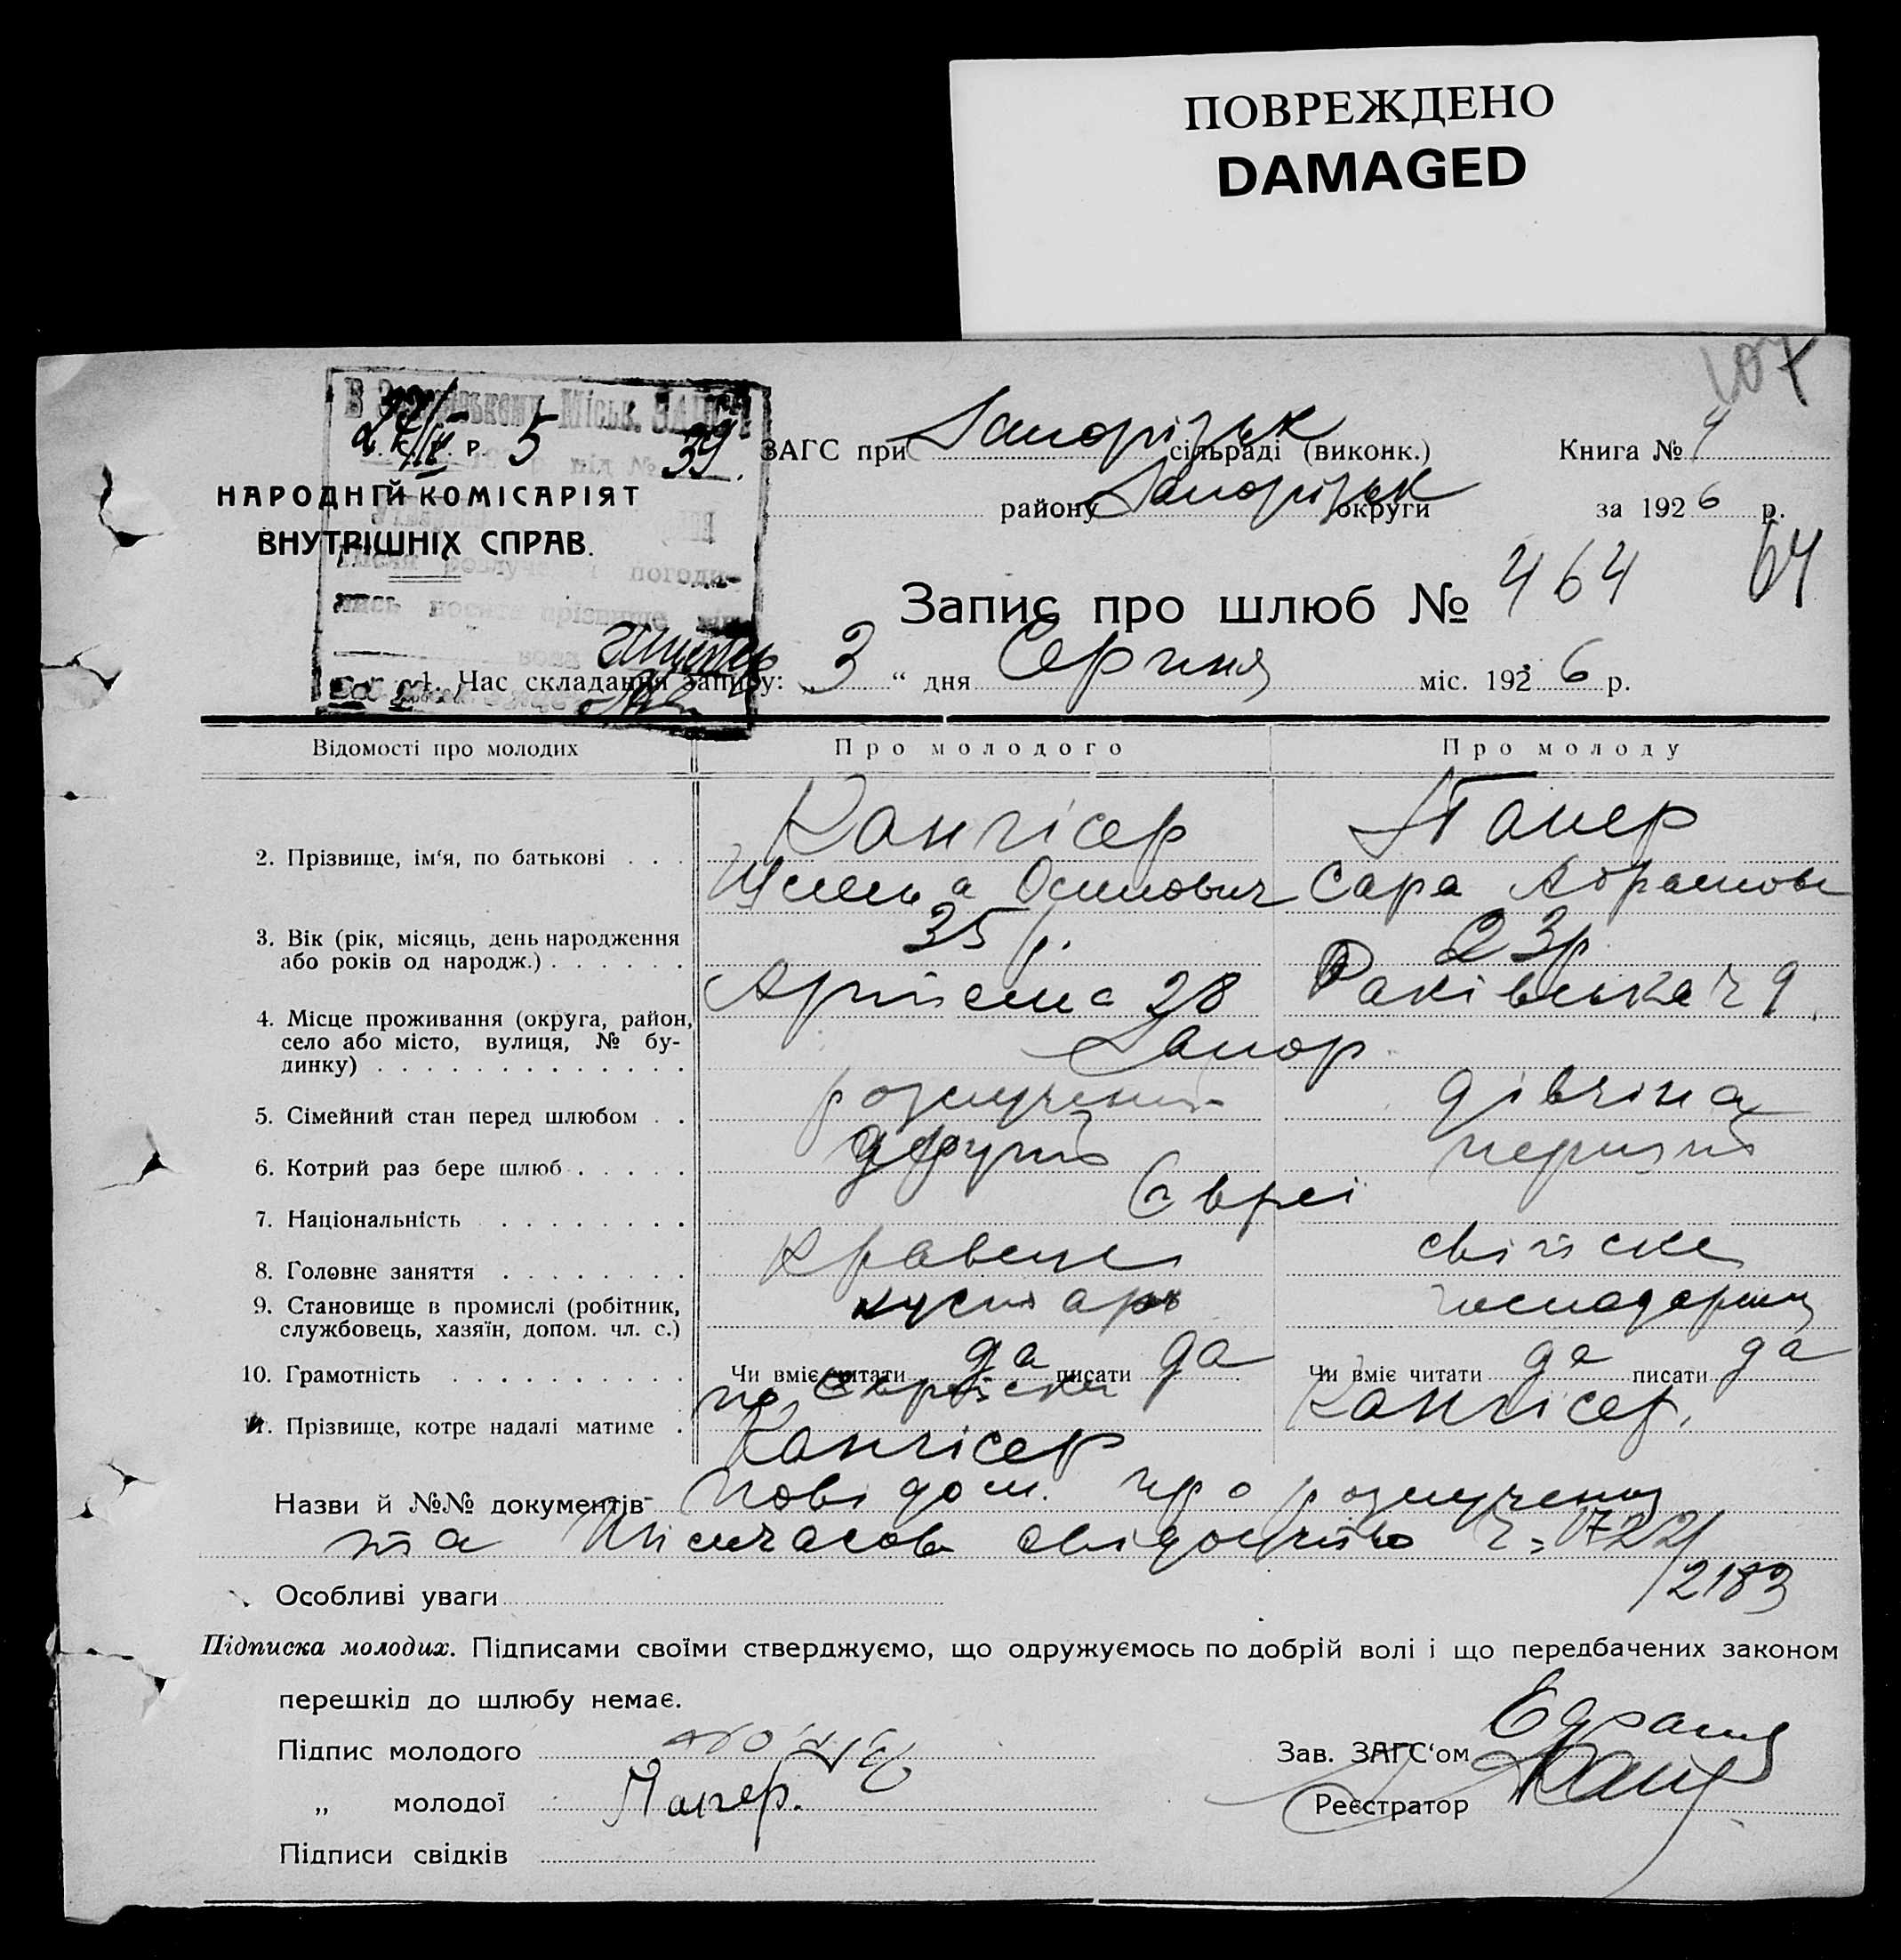 ПОВРЕЖДЕНО
DAMAGED
107
В Запорізькому Міськ. ЗАГС'і
р. 5 під № 39.
ЗАГС при Запорізьк сільраді (виконк.) Книга № 9
НАРОДНІЙ КОМІСАРІЯТ
району Запорізьк округи за 1926 р.
ВНУТРІШНІХ СПРАВ.
погоди-
лись носити прізвище
Запис про шлюб № 464 64
1. Час складання запису: „3“ дня Серпня міс. 1926 р.
Відомості про молодих Про молодого Про молоду
2. Прізвище, ім'я, по батькові . . . Кангісер
Осипович Сара Абрамовн
3. Вік (рік, місяць, день народження або років од народж.) . . . . . . 35 р. 23 р
4. Місце проживання (округа, район, село або місто, вулиця, № будинку) . . . . . . . . . . . . . Артема 28 Раківська 9
Запор
5. Сімейний стан перед шлюбом . . розлучений дівчіна
6. Котрий раз бере шлюб . . . . . другий перший
7. Національність . . . . . . . . Євреї
8. Головне заняття . . . . . . . . Кравець свійське
9. Становище в промислі (робітник, службовець, хазяїн, допом. чл. с.) кустарь господарство
10. Грамотність . . . . . . . . . . Чи вміє читати да писати да Чи вміє читати да писати да
по Єврейски
11. Прізвище, котре надалі матиме . Кангісер Кангісер.
Назви й №№ документів Повідом. про розлучення
та тимчасове свідоцтво ч. 1722/2183
Особливі уваги
Підписка молодих. Підписами своїми стверджуємо, що одружуємось по добрій волі і що передбачених законом
перешкід до шлюбу немає.
Підпис молодого Зав. ЗАГС'ом
„ молодої Реєстратор
Підписи свідків